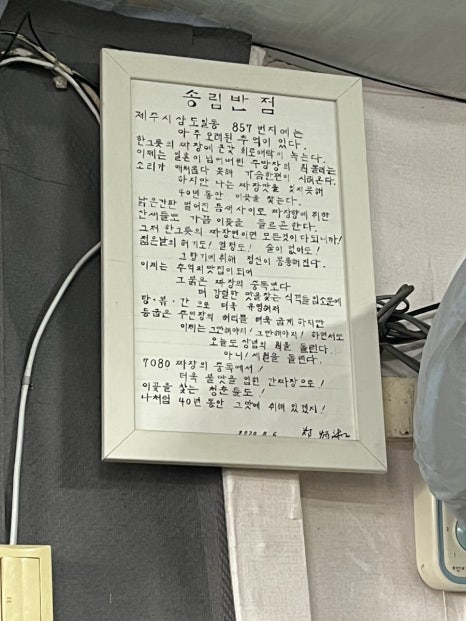 송림반점
제주시 삼도일동 857번지에는
아주 오래된 추억이 있다.
한그릇의 짜장에 온갖 희로애락이 녹는다.
이제는 일흔이 넘어버린 주방장의 웍 돌리는
소리가 애처롭다 못해 가슴한편이 시려온다.
하지만 나는 짜장맛을 잊지못해
40년 동안 이곳을 찾는다.
낡은간판 벌어진 틈새 사이로 짜장향에 취한
간새들도 가끔 이곳을 들르곤한다.
그저 한그릇의 짜장면이면 모든것이 다되니까!
젊은날의 허기도! 열정도! 술이 없어도!
그향기에 취해 정신이 몽롱해졌다.
이제는 추억의 맛집이 되어
그 붉은 짜장의 중독보다
더 강렬한 맛을 찾는 식객들 입소문에
탕·볶·간 으로 더욱 유명해져
등굽은 주인장의 허리를 더욱 굽게 하지만
이제는 그만해야지! 그만해야지! 하면서도
오늘도 상념의 웍을 돌린다.
아니! 세월을 돌린다.
7080 짜장의 중독에서!
더욱 불맛을 입힌 간짜장으로!
이곳을 찾는 청춘들도!
나처럼 40년 동안 그맛에 취해 있겠지!
2020. 8. 6